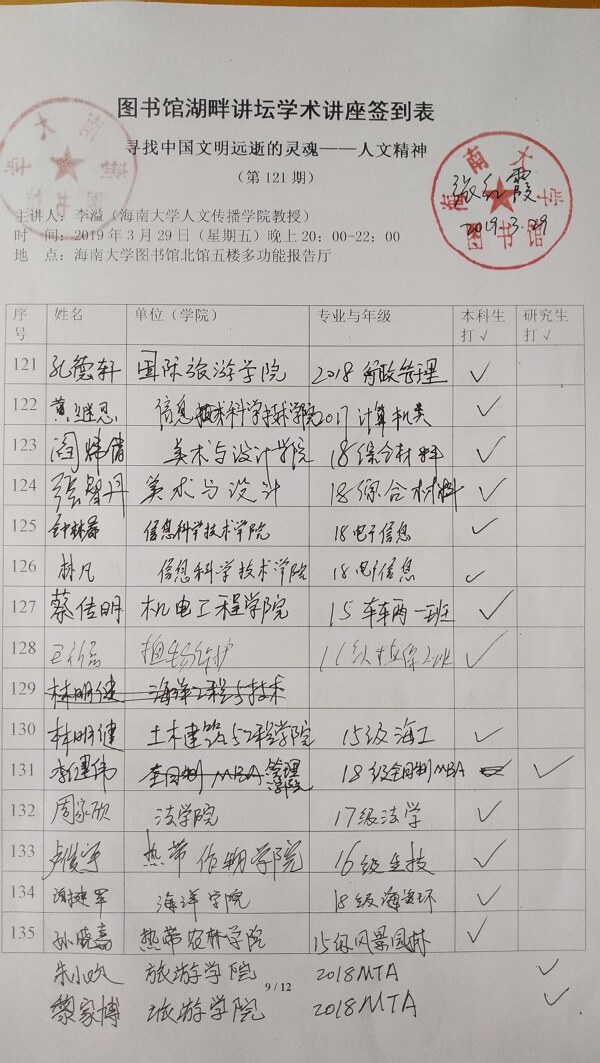 图书馆湖畔讲坛学术讲座签到表
寻找中国文明远逝的灵魂——人文精神
（第 121 期）
海南大学
图书馆
张红霞
2019.3.29
主讲人：李溢（海南大学人文传播学院教授）
时　间：2019 年 3 月 29 日（星期五）晚上 20：00-22：00
地　点：海南大学图书馆北馆五楼多功能报告厅
序号 姓名 单位（学院） 专业与年级 本科生打√ 研究生打√
121 孔德轩 国际旅游学院 2018 行政管理 √
122 黄继恩 信息科学技术学院 2017 计算机类 √
123 美术与设计学院 18综合材料 √
124 张馨丹 美术与设计 18综合材料 √
125 钟林 信息科学技术学院 18电子信息 √
126 林凡 信息科学技术学院 18电子信息 √
127 蔡佳明 机电工程学院 15车辆一班 √
128 √
129 林明健 海洋工程与技术
130 林明健 土木建筑与工程学院 15级海工 √
131 李建伟 全日制MBA 管理学院 18级全日制MBA √
132 周家欣 法学院 17级法学 √
133 热带作物学院 16级生技 √
134 谢建军 海洋学院 18级海资环 √
135 孙晓嘉 热带农林学院 15级风景园林 √
朱小欢 旅游学院 2018MTA √
9 / 12
黎家博 旅游学院 2018MTA √